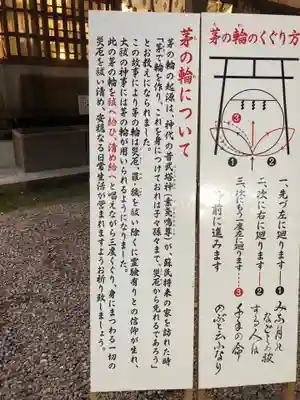 茅の輪のくぐり方
③
❶
❷
一、先づ左に廻ります――❶
二、次に右に廻ります――❷
三、次にもう一度左に廻ります……❸
前に進みます
みな月の
なごしの祓
する人は
千年の命
のぶと云ふなり
茅の輪について
茅の輪の起源は、神代の昔武塔神(素戔嗚尊)が、蘇民将来の家を訪れた時
「茅で輪を作り、これを身につけておれば子々孫々まで、災厄から免れるであろう」
とお教えになられました。
この故事により茅の輪は災厄、罪穢を祓い除くに霊験有りとの信仰が生れ、
大祓の神事には茅の輪が用いられるようになりました。
此の茅の輪を祓へ給ひ清め給へと唱えながら三度くぐり、身にまつわる一切の
災厄を祓い清め、安穏なる日常生活が営まれますようお祈り致しましょう。